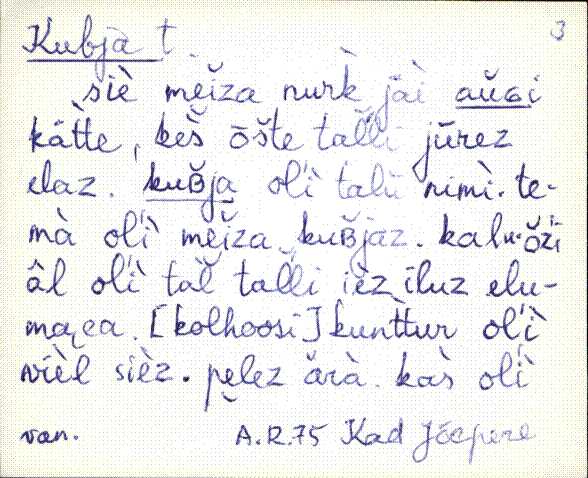 Kubja t. 3
siè mĕi̮za nurk̀ jäi aŭsi
kätte, keš ōšte tal̆l̆i jūrez
elaz. kuʙ̆ja ol'ì talū nimì. te-
mà ol'ì mĕi̮za kuʙ̆jaz.
âl ol'ì tal̆l̆i iluz elu-
maea. [kolhoosi] kunt̆tur ol'ì
vièl sièz. pęlez ărà. kas̀ ol'ì
van. A.R.75 Kad Jõepere